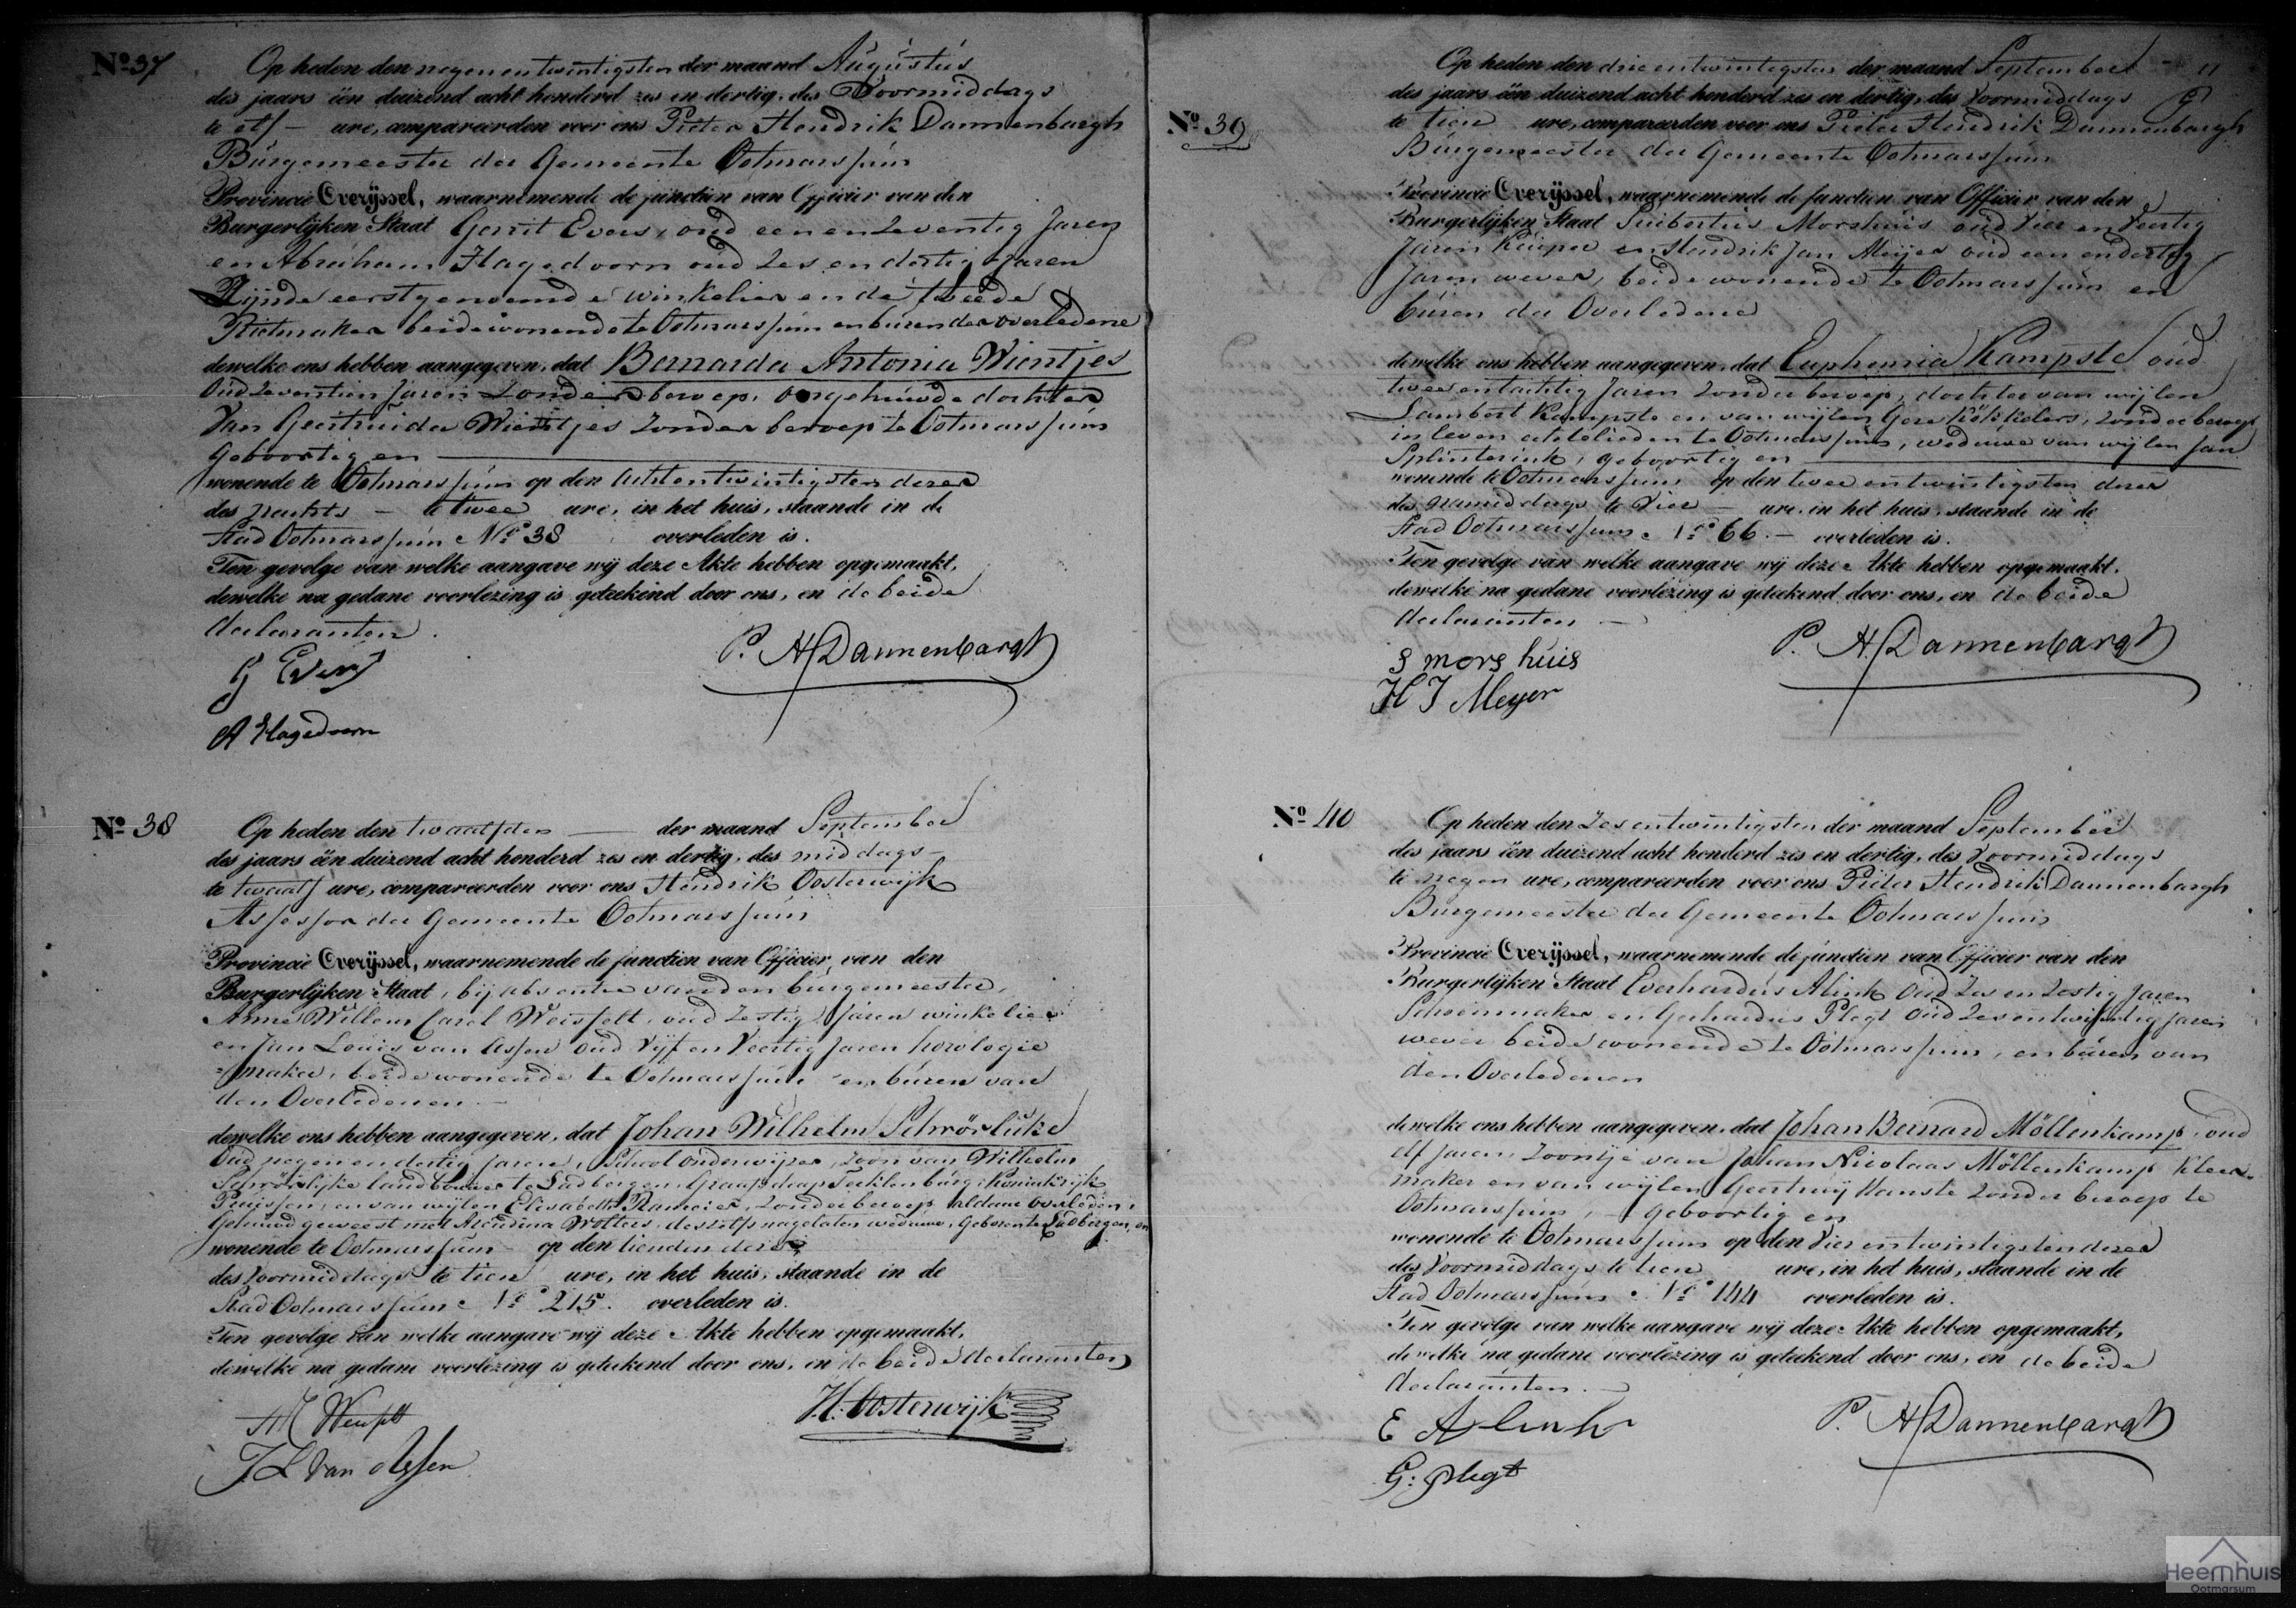 No. 37
Op heden den negen en twintigsten der maand Augustus
des jaars één duizend acht honderd zes en dertig, des Voormiddags
te elf - ure, compareerden voor ons Pieter Hendrik Dannenbargh
Burgemeester der Gemeente Ootmarssum
Provincie Overijssel, waarnemende de functien van Officier van den
Burgerlijken Staat Gerrit Evers, oud een en zeventig Jaren
en Abraham Hagedoorn oud zes en dertig Jaren
Zijnde eerstgenoemde winkelier en de tweede
Rietmaker beide wonende te Ootmarssum en buren der overledene
dewelke ons hebben aangegeven, dat Bernarda Antonia Wientjes
Oud zeventien Jaren Zonder beroep, ongehuwde dochter
Van Geertruida Wientjes Zonder beroep te Ootmarssum
Geboortig en
wonende te Ootmarssum op den achtentwintigsten dezer
des nachts - te twee ure, in het huis, staande in de
Stad Ootmarssum No. 38 overleden is.
Ten gevolge van welke aangave wij deze Akte hebben opgemaakt,
dewelke na gedane voorlezing is geteekend door ons, en de beide
declaranten.
P. H. Dannenbargh
G Evers
A Hagedoorn
No. 38
Op heden den twaalfden der maand September
des jaars één duizend acht honderd zes en dertig, des middags -
te twaalf ure, compareerden voor ons Hendrik Oosterwijk
Assessor der Gemeente Ootmarssum
Provincie Overijssel, waarnemende de functien van Officier van den
Burgerlijken Staat, bij absentie van den burgemeester,
Anne Willem Carel Weisfelt, oud Zestig Jaren winkelier
en Jan Louis van Assen oud Vijf en Veertig Jaren horologie
=maker, beide wonende te Ootmarssum en buren van
den Overledenen -
dewelke ons hebben aangegeven, dat Johan Wilhelm Schrörlüke
Oud negen en dertig Jaren, School onderwijzer, Zoon van Wilhelm
landbouwer te Ladbergen, Graafschap Tecklenburg, Koninkrijk
Pruissen, en van wijlen Elisabeth Zonder beroep aldaar overleden,
Gehuwd geweest met Arendina Wolters, deszelfs nagelaten weduwe, Geboren te Ladbergen, en
wonende te Ootmarssum op den tienden dezer
des Voormiddags te tien ure, in het huis, staande in de
Stad Ootmarssum No. 215. overleden is.
Ten gevolge van welke aangave wij deze Akte hebben opgemaakt,
dewelke na gedane voorlezing is geteekend door ons, en de beide declaranten
H. Oosterwijk
J L van Assen
No. 39
Op heden den drie entwintigsten der maand September
des jaars één duizend acht honderd zes en dertig, des Voormiddags
te tien ure, compareerden voor ons Pieter Hendrik Dannenbargh
Burgemeester der Gemeente Ootmarssum
Provincie Overijssel, waarnemende de functien van Officier van den
Burgerlijken Staat Suibertus Morshuis oud Vier en Veertig
Jaren Kuiper en Hendrik Jan Meijer oud een en dertig
Jaren wever, beide wonende te Ootmarssum en
buren der Overledene
dewelke ons hebben aangegeven, dat Euphemia Kampste oud
twee entachtig Jaren Zonder beroep, dochter van wijlen
Lambert Kampste en van wijlen Gese Zonder beroep
in leven echtelieden te Ootmarssum, weduwe van wijlen Jan
Splinterink, geboortig en
wonende te Ootmarssum op den twee entwintigsten dezer
des namiddags te Vier - ure, in het huis, staande in de
Stad Ootmarssum No. 66. - overleden is.
Ten gevolge van welke aangave wij deze Akte hebben opgemaakt,
dewelke na gedane voorlezing is geteekend door ons, en de beide
declaranten -
P. H. Dannenbargh
S morshuis
H J Meyer
No. 40
Op heden den Zes entwintigsten der maand September
des jaars één duizend acht honderd zes en dertig, des Voormiddags
te negen ure, compareerden voor ons Pieter Hendrik Dannenbargh
Burgemeester der Gemeente Ootmarssum
Provincie Overijssel, waarnemende de functien van Officier van den
Burgerlijken Staat Everhardus Alink Oud Zes en Zestig Jaren
Schoenmaker en Gerhardus Plegt Oud Zes entwintig Jaren
wever beide wonende te Ootmarssum, en buren van
den Overledenen
dewelke ons hebben aangegeven, dat Johan Bernard Möllenkamp, oud
elf Jaren, Zoontje van Johan Nicolaas Möllenkamp kleer-
maker en van wijlen Geertruij Zonder beroep te
Ootmarssum, - geboortig en
wonende te Ootmarssum op den Vier entwintigsten dezer
des Voormiddags te tien ure, in het huis, staande in de
Stad Ootmarssum No. 144 overleden is.
Ten gevolge van welke aangave wij deze Akte hebben opgemaakt,
dewelke na gedane voorlezing is geteekend door ons, en de beide
declaranten. -
P. H. Dannenbargh
E Alink
G: Plegt
Heemhuis
Ootmarsum